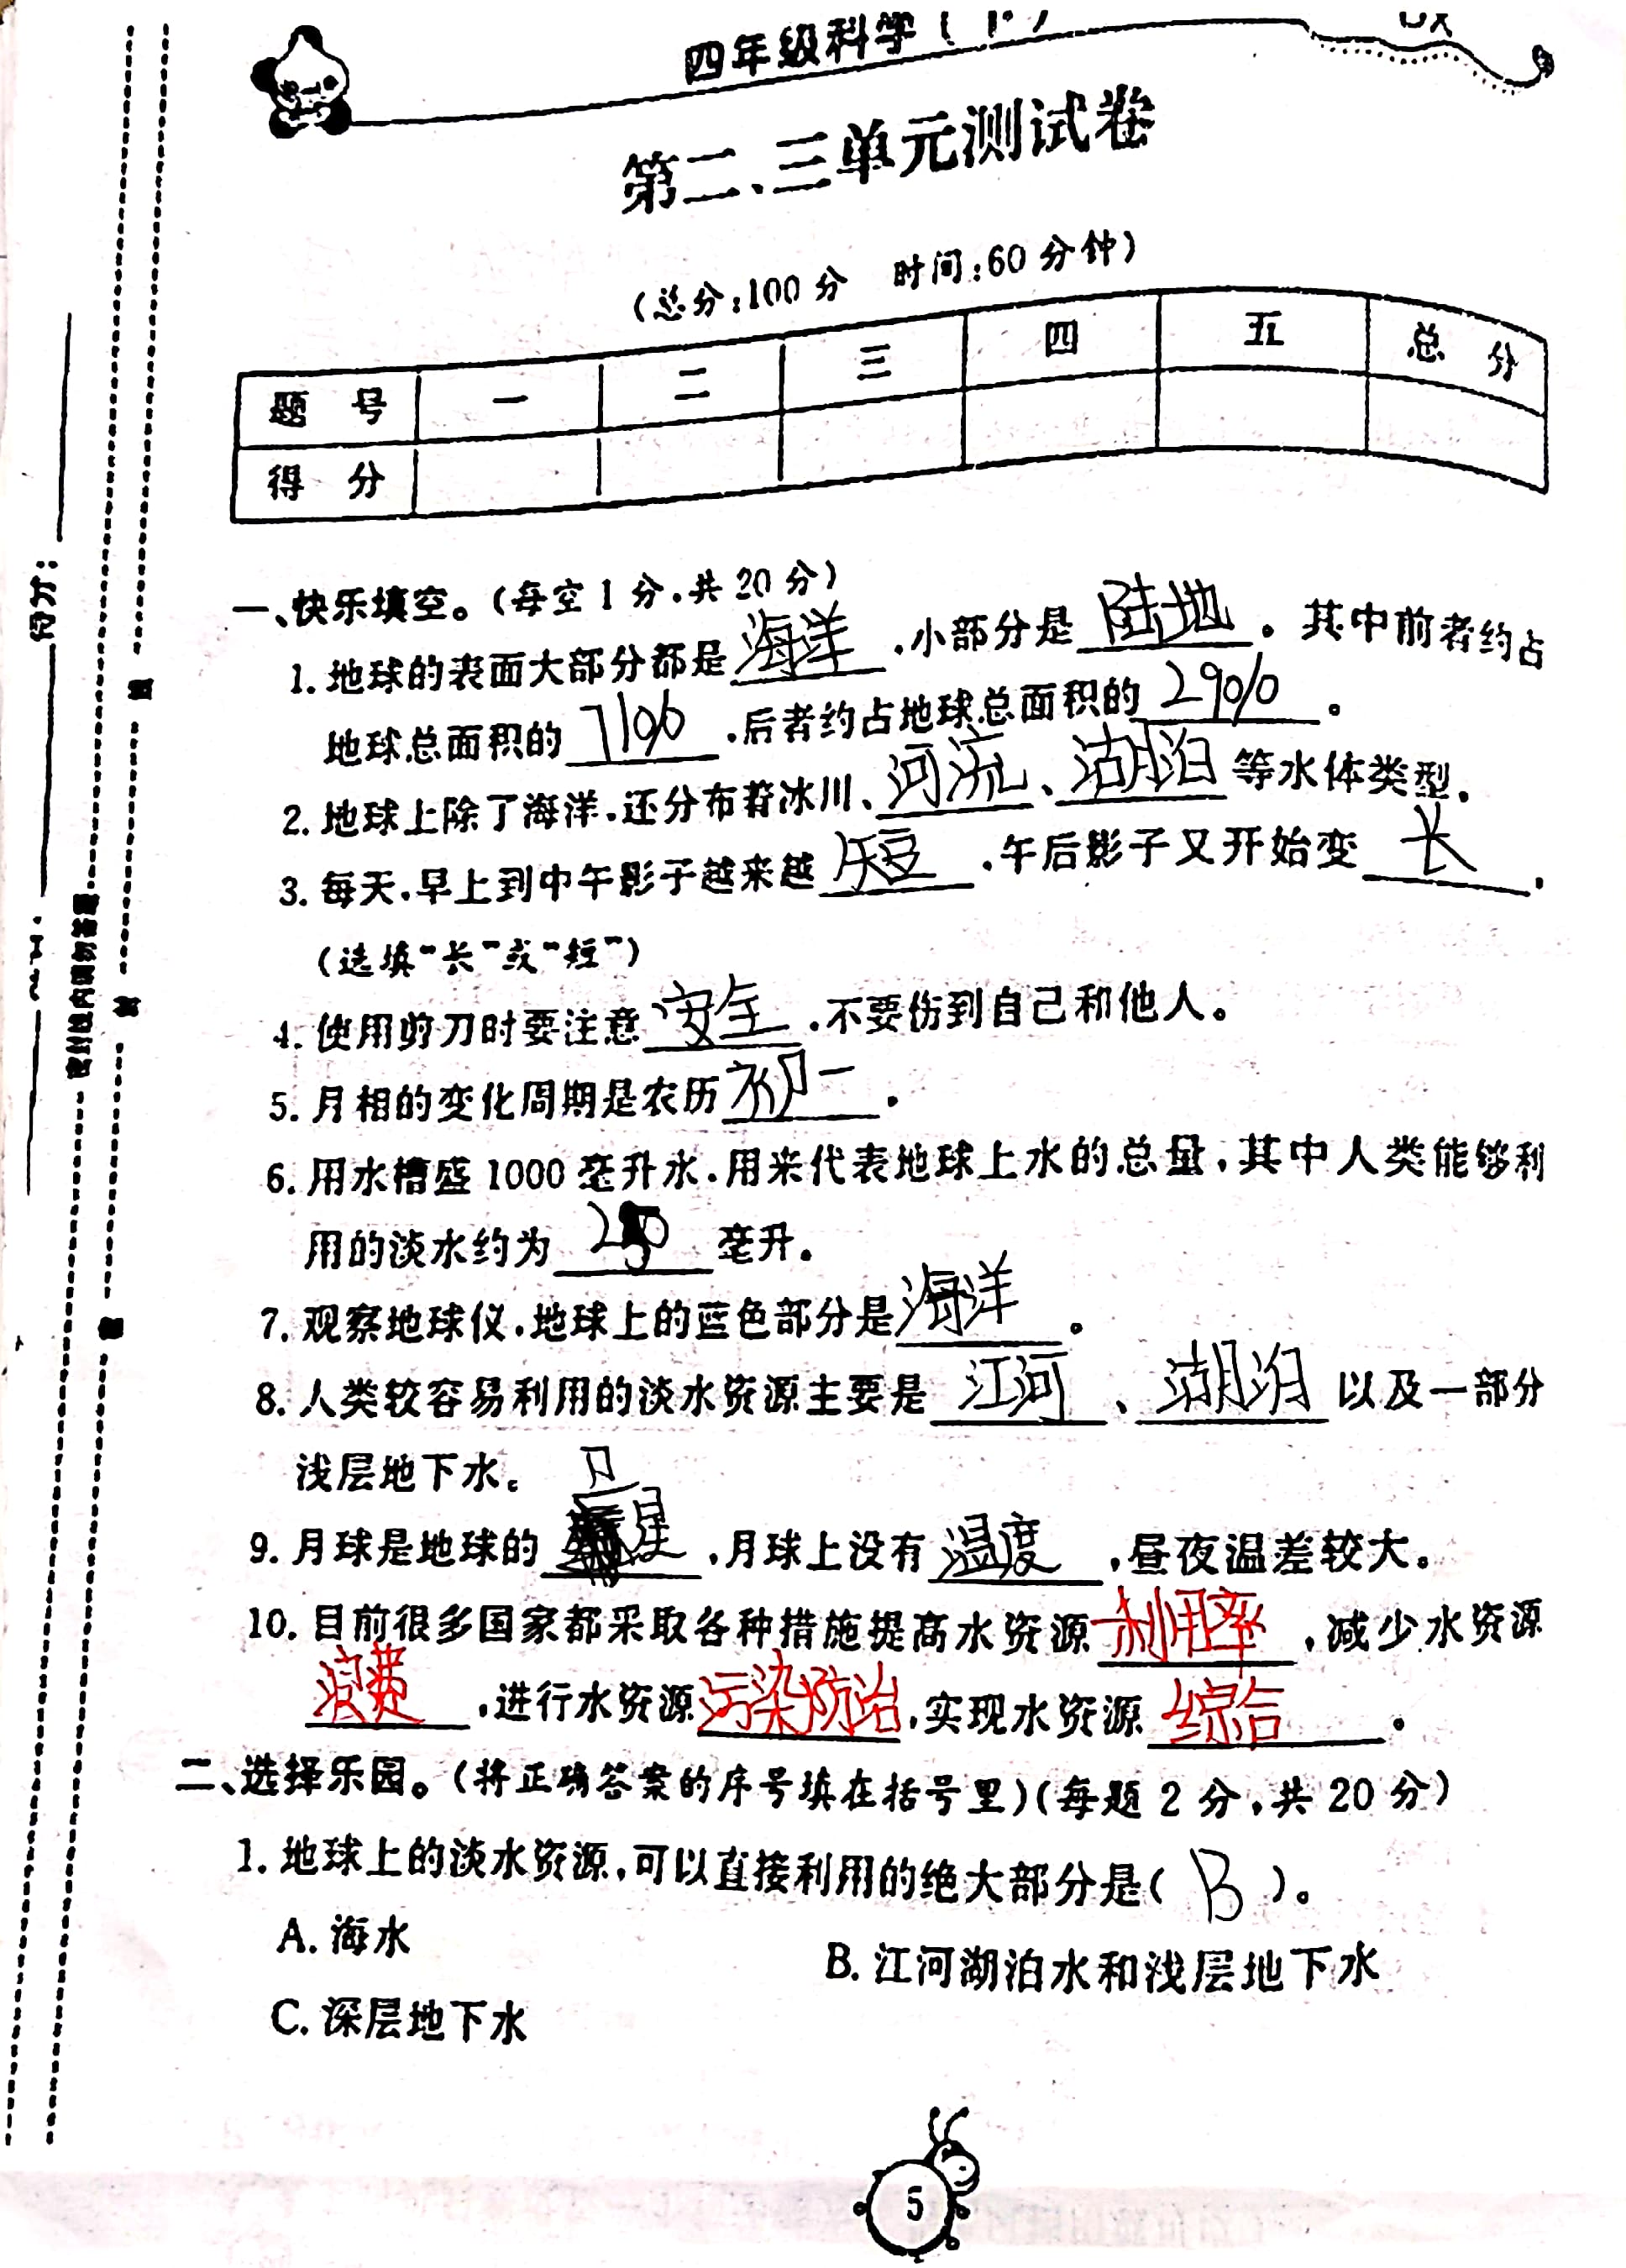 四年级科学(下)
第二、三单元测试卷
(总分:100分 时间:60分钟)
题号 一 二 三 四 五 总分
得分
得分:
密封线内请勿答题
一、快乐填空。(每空1分,共20分)
1. 地球的表面大部分都是海洋,小部分是陆地。其中前者约占
地球总面积的71%,后者约占地球总面积的29%。
2. 地球上除了海洋,还分布着冰川、河流、湖泊等水体类型。
3. 每天,早上到中午影子越来越短,午后影子又开始变长。
(选填“长”或“短”)
4. 使用剪刀时要注意安全,不要伤到自己和他人。
5. 月相的变化周期是农历初一。
6. 用水槽盛1000毫升水,用来代表地球上水的总量,其中人类能够利
用的淡水约为 毫升。
7. 观察地球仪,地球上的蓝色部分是海洋。
8. 人类较容易利用的淡水资源主要是江河、湖泊以及一部分
浅层地下水。
9. 月球是地球的卫星,月球上没有温度,昼夜温差较大。
10. 目前很多国家都采取各种措施提高水资源利用率,减少水资源
浪费,进行水资源污染防治,实现水资源综合。
二、选择乐园。(将正确答案的序号填在括号里)(每题2分,共20分)
1. 地球上的淡水资源,可以直接利用的绝大部分是(B)。
A. 海水
B. 江河湖泊水和浅层地下水
C. 深层地下水
5